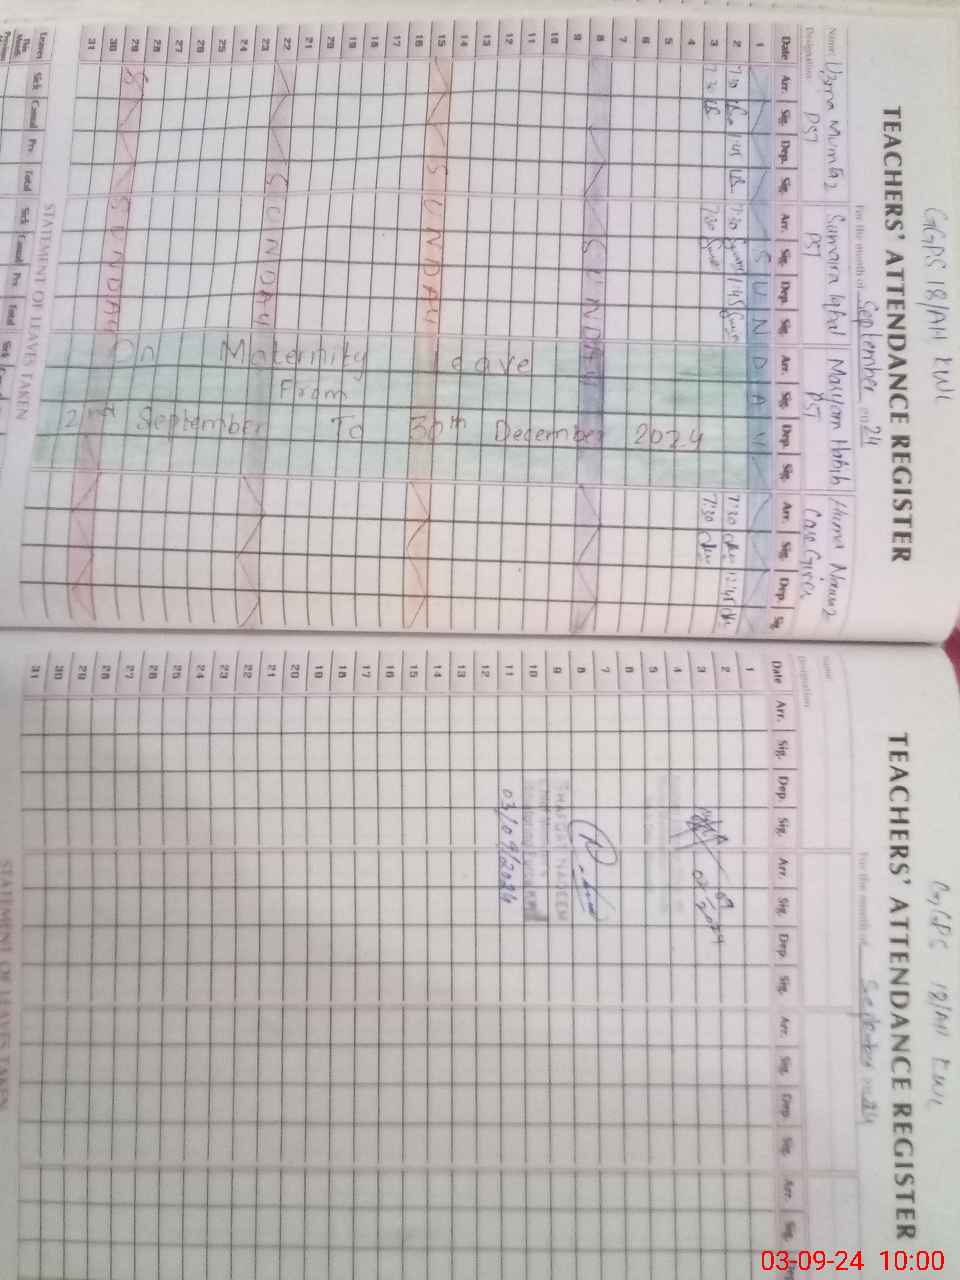 GGPS 18/AH KWL
TEACHERS' ATTENDANCE REGISTER
For the month of September 2024
Name: Uzma Mumtaz Sumaira Iqbal Maryam Habib Huma
Designation: PST PST PST Care Giver
Date Arr. Sig. Dep. Sig. Arr. Sig. Dep. Sig. Arr. Sig. Dep. Sig. Arr. Sig. Dep. Sig.
1 SUNDAY
2 7:30 1:45 7:30 1:45 7:30 12:45
3 7:30 7:30 7:30
4
5
6
7
8 SUNDAY
9
10
11
12
13
14
15 SUNDAY
16
17
18
19
20
21
22 SUNDAY
23
24
25
26
27
28
29 SUNDAY
30
31
On Maternity Leave
From
2nd September To 30th December 2024
STATEMENT OF LEAVES TAKEN
Leaves Sick Casual Prv. Total Sick Casual Prv. Total Sick
GGPS 18/AH KWL
TEACHERS' ATTENDANCE REGISTER
For the month of September 2024
Name:
Designation:
Date Arr. Sig. Dep. Sig. Arr. Sig. Dep. Sig. Arr. Sig. Dep. Sig. Arr. Sig.
1
2
3
4
5
6
7
8
9
10
11
12
13
14
15
16
17
18
19
20
21
22
23
24
25
26
27
28
29
30
31
NADEEM
03/09/2024
STATEMENT OF LEAVES TAKEN
03-09-24 10:00